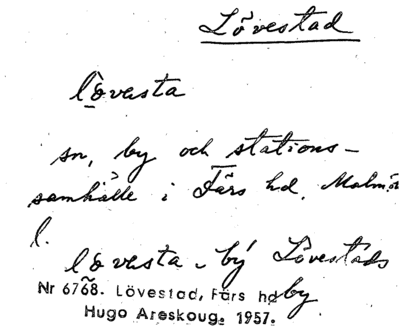 Lövestad
lövesta
sn, by och stations-
samhälle i Färs hd, Malmöh
l.
lövesta by Lövestads
by
Nr 6768. Lövestad, Färs hd
Hugo Areskoug. 1957.